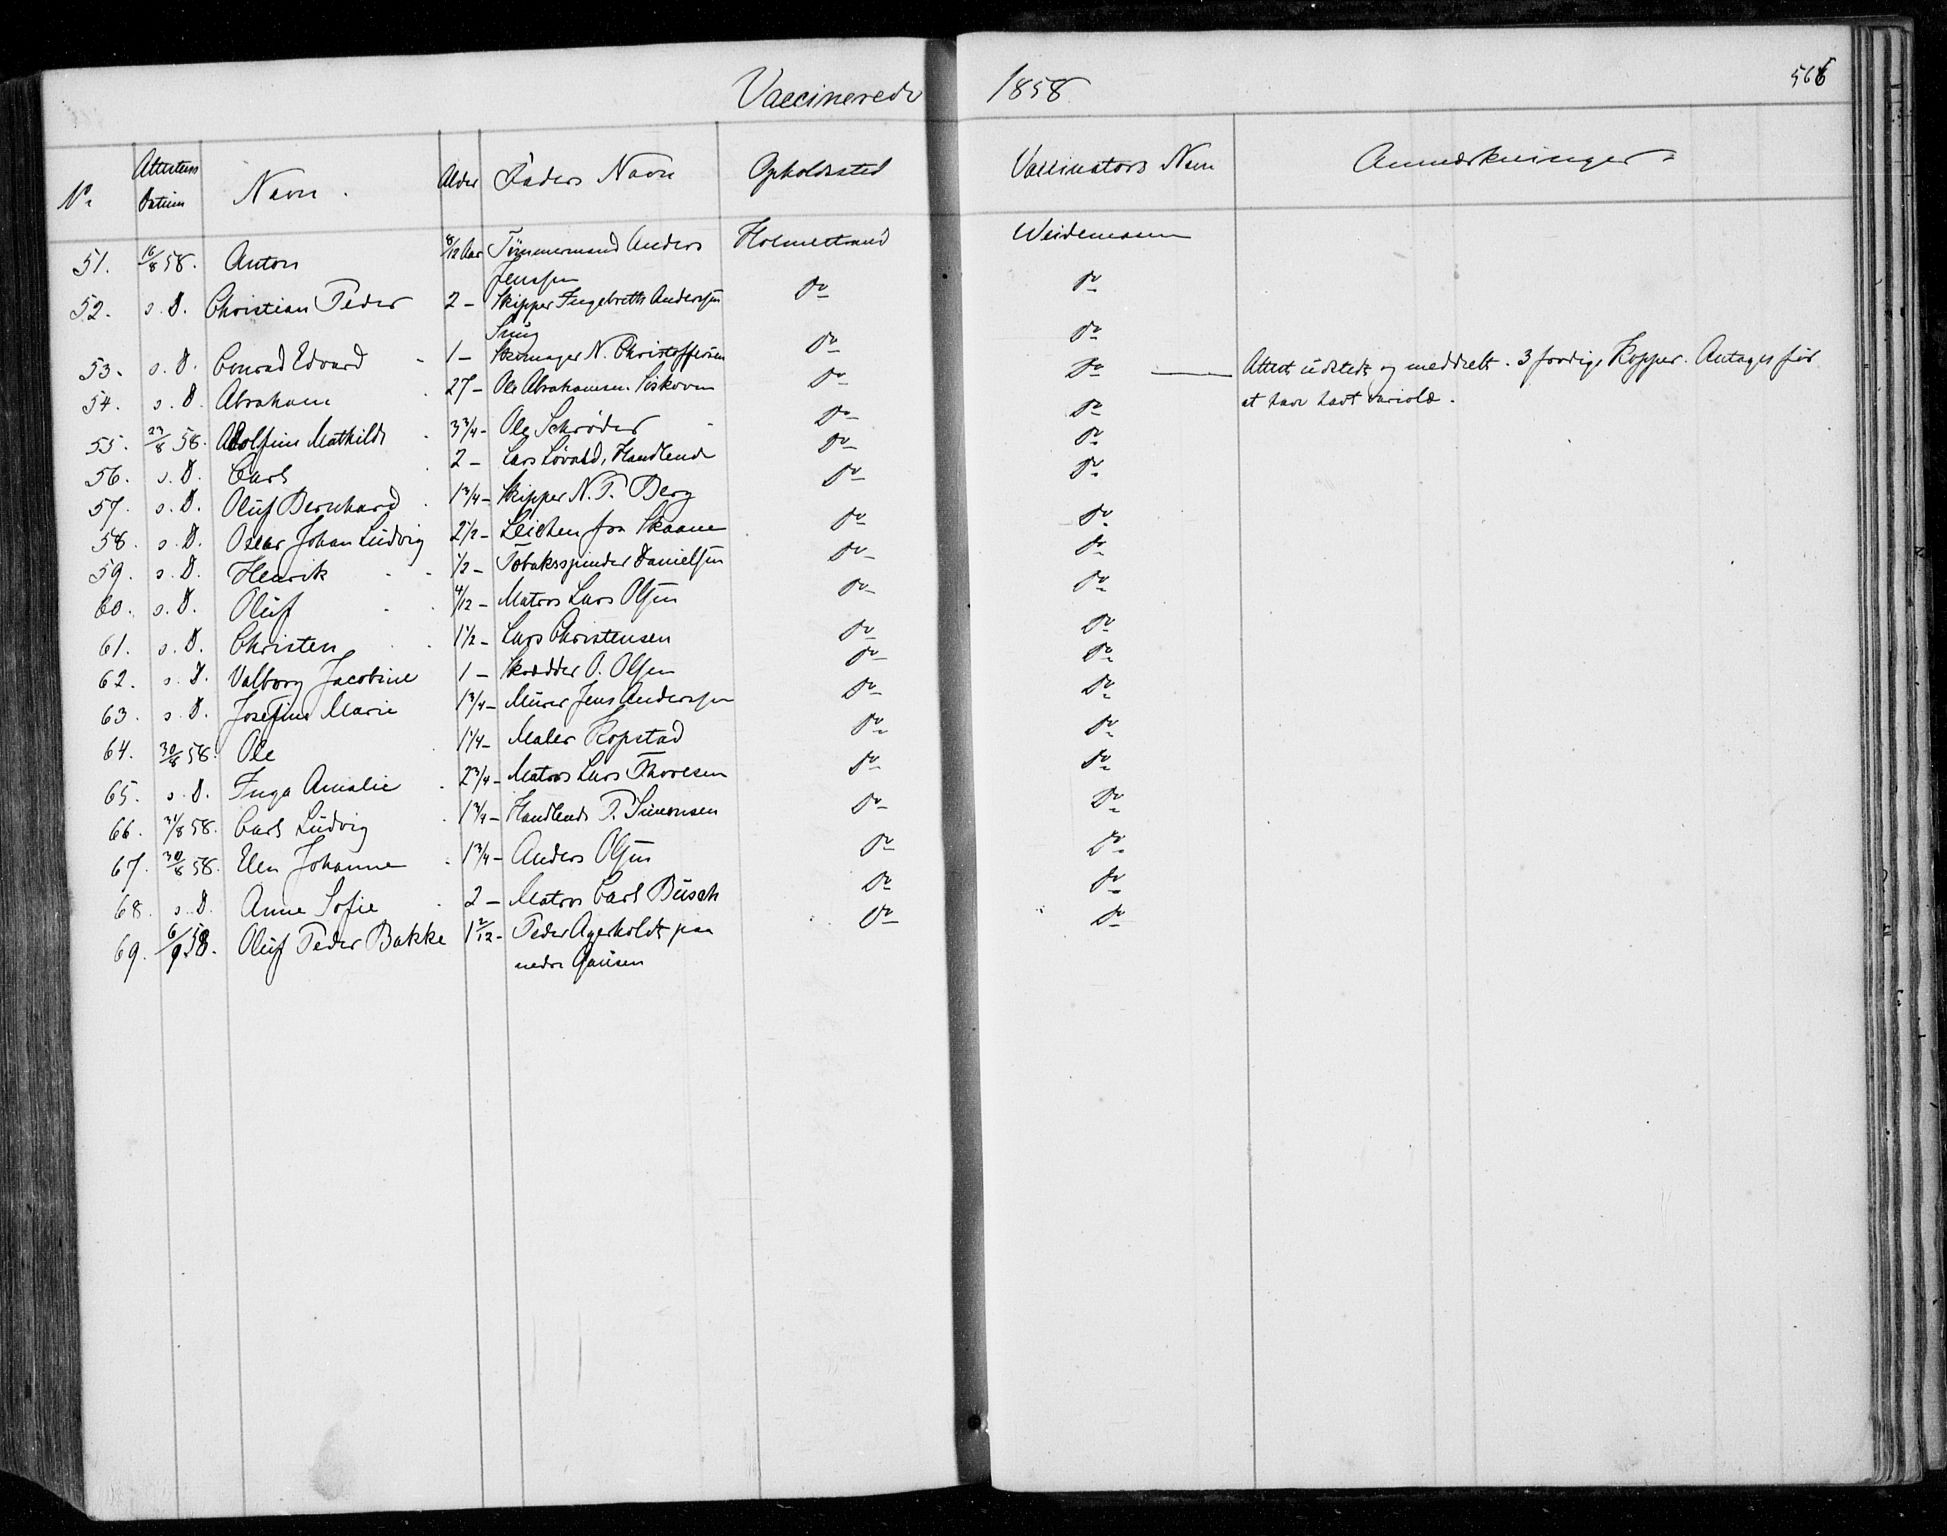 Vaccinerede 1858 566
No Attestens Datum Navn. Alder Faders Navn Opholdssted Vaccinators Navn Anmærkninger
51. 16/8 58. Anton 8/12 Aar Tømmermand Anders Jenssen Holmestrand Weidemann
52. s. D. Christian Peder 2 - Skipper Ingebreth Anderssen Do Do
53. s. D. Conrad Edvard 1 - Skomager N. Christoffersen Do Do
54. s. D. Abraham 27 - Ole Abrahamsen Do Do Attest udstedt og meddeelt. 3 Kopper. Antages før
at have havt variolæ.
55. 23/8 58. Adolfine Mathilde 3 3/4 - Ole Schrøder Do Do
56. s. D. Carl 2 - Lars Løvald, Handlende Do Do
57. s. D. Oluf Bernhard 1 3/4 - Skipper N. P. Berg Do Do
58. s. D. Oscar Johan Ludvig 2 1/2 - fra Skaane Do Do
59. s. D. Henrik 1/2 - Tobaksspinder Danielsen Do Do
60. s. D. Oluf 4/12 - Matros Lars Olsen Do Do
61. s. D. Christen 1 1/2 - Lars Christensen Do Do
62. s. D. Valborg Jacobine 1 - Skrædder O. Olsen Do Do
63. s. D. Josefine Marie 1 3/4 - Murer Jens Anderssen Do Do
64. 30/8 58. Ole 1 1/4 - Maler Kopstad Do Do
65. s. D. Inga Amalie 2 3/4 - Matros Lars Thoresen Do Do
66. 31/8 58. Carl Ludvig 1 3/4 - Handlende P. Simonsen Do Do
67. 30/8 58. Elen Johanne 1 3/4 - Anders Olsen Do Do
68. s. D. Anne Sofie 2 - Matros Carl Busch Do Do
69. 6/9 58. Oluf Peder Bakke 1 2/12 - Peder Agerholdt paa Do Do
nedre Gausen